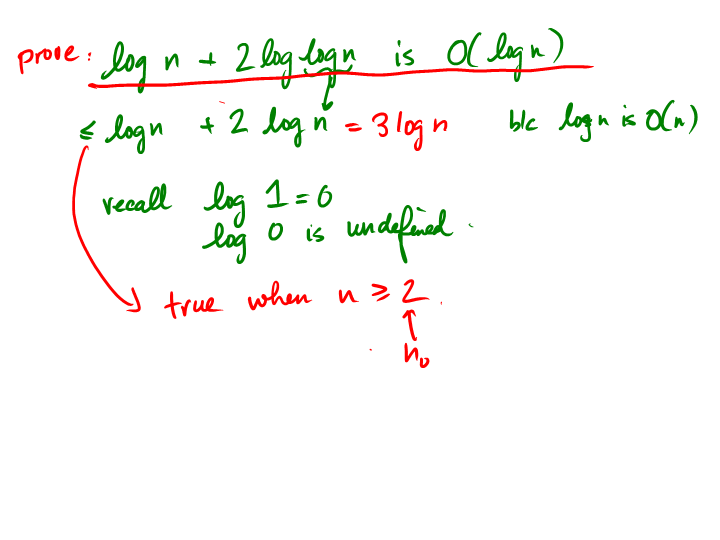 prove: log n + 2 log log n is O(log n)
≤ log n + 2 log n = 3 log n b/c log n is O(n)
recall log 1 = 0
log 0 is undefined.
true when n ≥ 2.
n₀